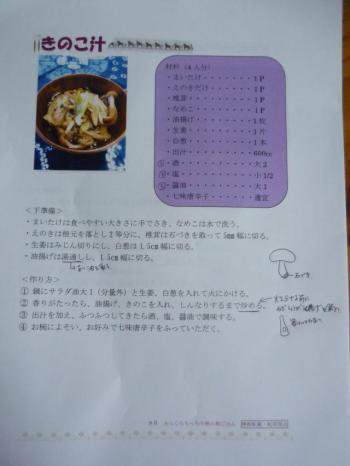 きのこ汁
材料(4人分)
・まいたけ・・・・・・・・1P
・えのきだけ・・・・・・・1P
・椎茸・・・・・・・・・・1P
・なめこ・・・・・・・・・1P
・油揚げ・・・・・・・・・1枚
・生姜・・・・・・・・・・1片
・白葱・・・・・・・・・・1本
・出汁・・・・・・・・600cc
①・酒・・・・・・・・・・大2
②・塩・・・・・・・・・小1/2
③・醤油・・・・・・・・・大1
・七味唐辛子・・・・・・適宜
<下準備>
・まいたけは食べやすい大きさに手でさき、なめこは水で洗う。
・えのきは根元を落とし2等分に、椎茸は石づきを取って5mm幅に切る。
・生姜はみじん切りにし、白葱は1.5cm幅に切る。
・油揚げは湯通しし、1.5cm幅に切る。
石づき
<作り方>
① 鍋にサラダ油大1(分量外)と生姜、白葱を入れて火にかける。
② 香りがたったら、油揚げ、きのこを入れ、しんなりするまで炒める。
③ 出汁を加え、ふつふつしてきたら酒、塩、醤油で調味する。
④ お椀によそい、お好みで七味唐辛子をふっていただく。